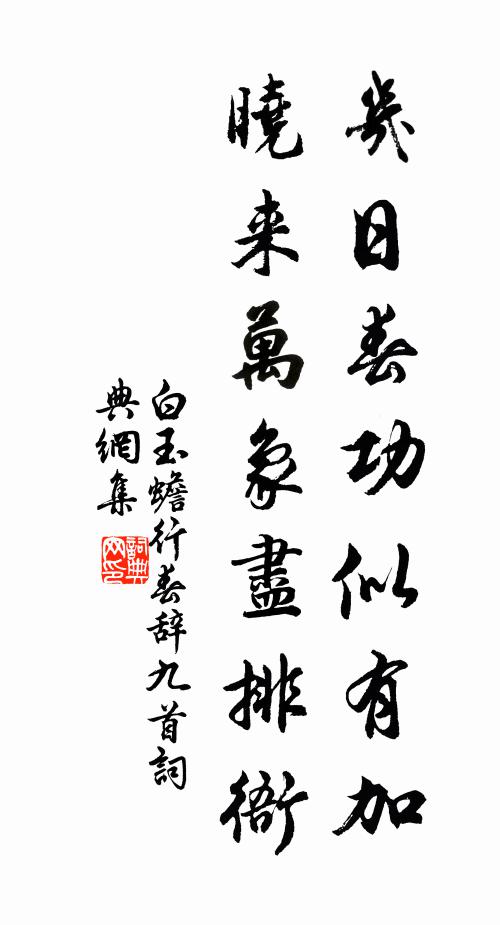 幾日春功似有加
曉来萬象盡排衙
白玉蟾行春辞九首詞
典網集
詞典
网印